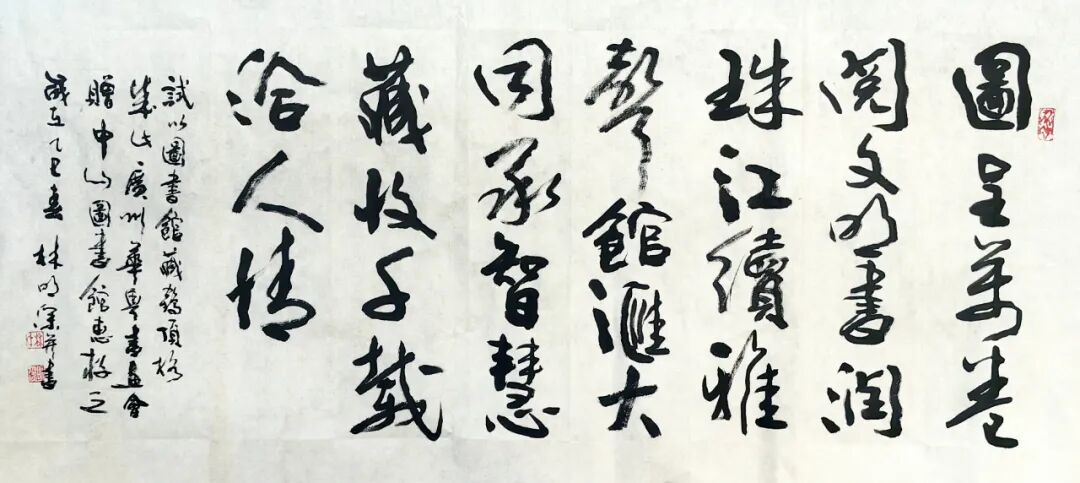 圖呈萬卷
閱文明書潤
珠江續雅
聲館滙大
同承智慧
藏收千載
洽人情
試以圖書館藏為頂格
成此廣州華粵書画會
贈中山圖書館惠存之
歲在乙巳春 林明深并書